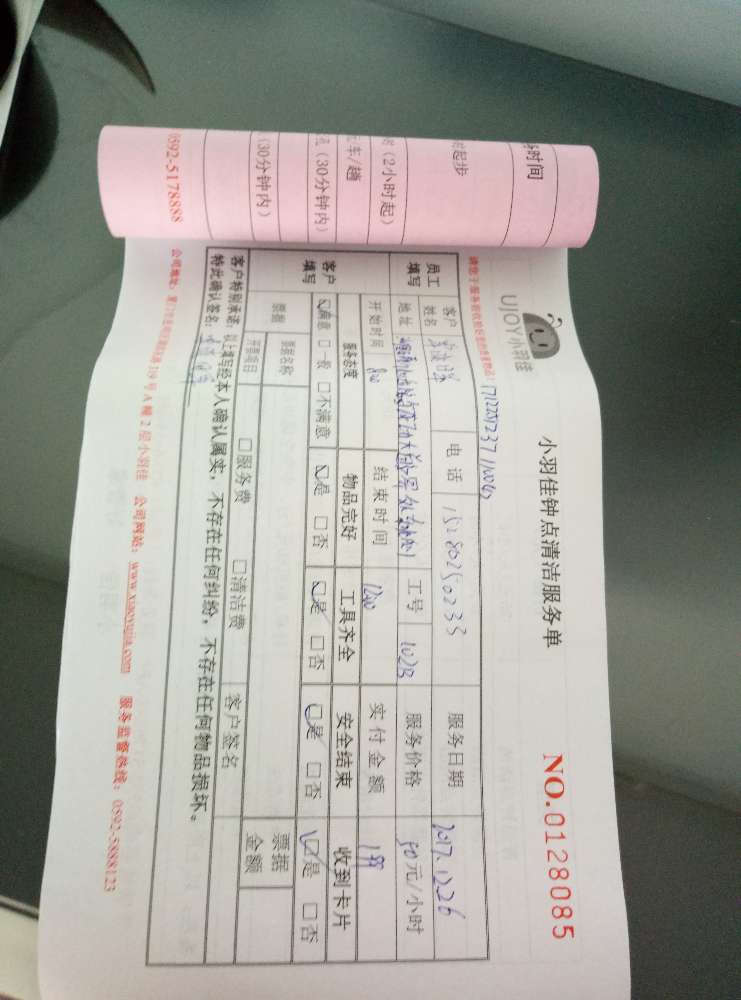 小羽佳钟点清洁服务单
NO.0128085
UJOY小羽佳
客户姓名 电话 15280250233 服务日期 2017.12.26
员工填写
地址 工号 1028 服务价格 50元/小时
开始时间 800 结束时间 1200 实付金额
客户填写
服务态度 物品完好 工具齐全 安全结束 收到卡片
☑满意 □一般 □不满意 ☑是 □否 ☑是 □否 ☑是 □否 ☑是 □否
票据 票据名称 票据金额
开票项目 □服务费 □清洁费
客户特别承诺: 客户签名
以上填写经本人确认属实,不存在任何纠纷,不存在任何物品损坏。
特此确认签名:
公司地址: 号A幢2层小羽佳 公司网站: www.xiaoyujia.com 服务监督热线: 0592-5888123
时间
起步
(2小时起)
车/趟
(30分钟内)
(30分钟内)
0592-5178888